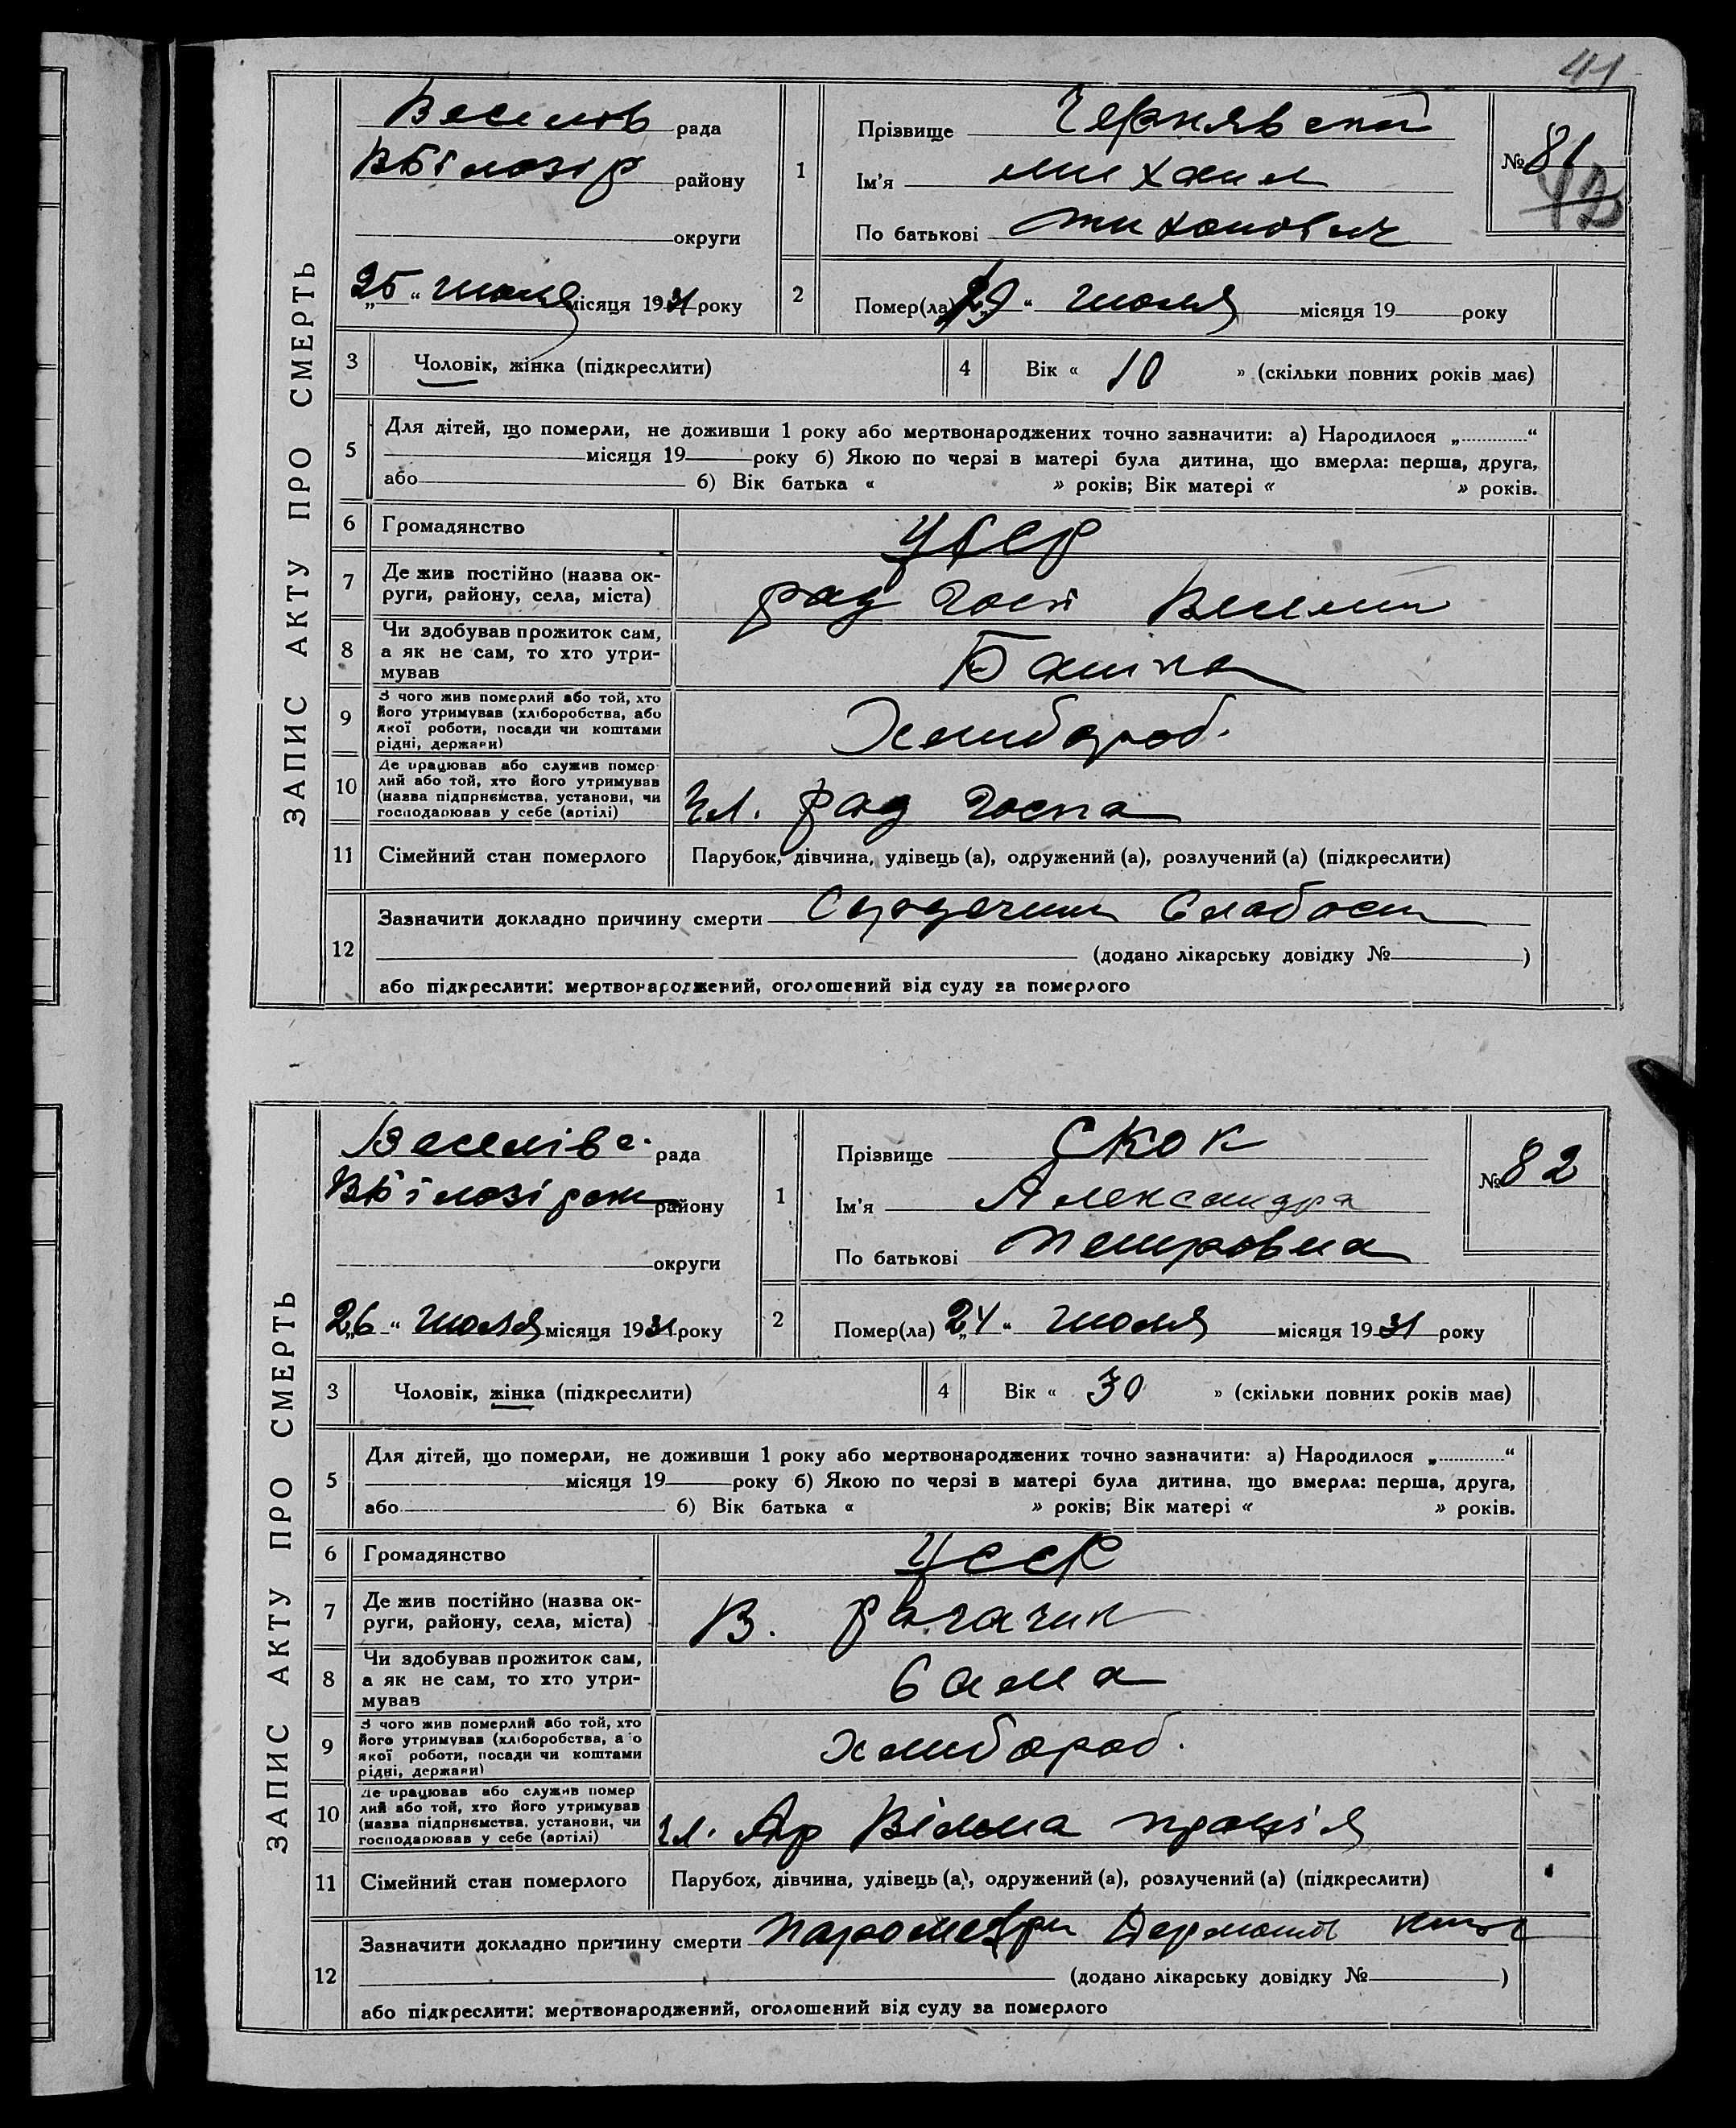 41
ЗАПИС АКТУ ПРО СМЕРТЬ
Веселов рада
ВБілозір району
округи
„25“ июля місяця 1931 року
1
Прізвище Чернявский
Ім’я михаил
По батькові тихонович
№ 81
42
2
Помер(ла) июля місяця 19 року
3 Чоловік, жінка (підкреслити)
4 Вік « 10 » (скільки повних років має)
5 Для дітей, що померли, не доживши 1 року або мертвонароджених точно зазначити: а) Народилося „ “
місяця 19 року б) Якою по черзі в матері була дитина, що вмерла: перша, друга,
або б) Вік батька « » років; Вік матері « » років.
6 Громадянство УССР
7 Де жив постійно (назва ок-
руги, району, села, міста) рад госп
8 Чи здобував прожиток сам,
а як не сам, то хто утри-
мував Батько
9 З чого жив померлий або той, хто
його утримував (хліборобства, або
якої роботи, посади чи коштами
рідні, держави) Хлибороб.
10 Де працював або служив помер
лий або той, хто його утримував
(назва підприємства, установи, чи
господарював у себе (артілі) чл. рад госпа
11 Сімейний стан померлого Парубок, дівчина, удівець (а), одружений (а), розлучений (а) (підкреслити)
12 Зазначити докладно причину смерти Слабость
(додано лікарську довідку № )
або підкреслити: мертвонароджений, оголошений від суду за померлого
ЗАПИС АКТУ ПРО СМЕРТЬ
Веселівс. рада
ВБілозірськ району
округи
„26“ июля місяця 1931 року
1
Прізвище Скок
Ім’я Александра
По батькові Петровна
№ 82
2
Помер(ла) „24“ июля місяця 1931 року
3 Чоловік, жінка (підкреслити)
4 Вік « 30 » (скільки повних років має)
5 Для дітей, що померли, не доживши 1 року або мертвонароджених точно зазначити: а) Народилося „ “
місяця 19 року б) Якою по черзі в матері була дитина, що вмерла: перша, друга,
або б) Вік батька « » років; Вік матері « » років.
6 Громадянство УССР
7 Де жив постійно (назва ок-
руги, району, села, міста) В. рагачик
8 Чи здобував прожиток сам,
а як не сам, то хто утри-
мував Сама
9 З чого жив померлий або той, хто
його утримував (хліборобства, або
якої роботи, посади чи коштами
рідні, держави) хлибороб.
10 Де працював або служив помер
лий або той, хто його утримував
(назва підприємства, установи, чи
господарював у себе (артілі) чл. Ар Вільна праця
11 Сімейний стан померлого Парубок, дівчина, удівець (а), одружений (а), розлучений (а) (підкреслити)
12 Зазначити докладно причину смерти
(додано лікарську довідку № )
або підкреслити: мертвонароджений, оголошений від суду за померлого